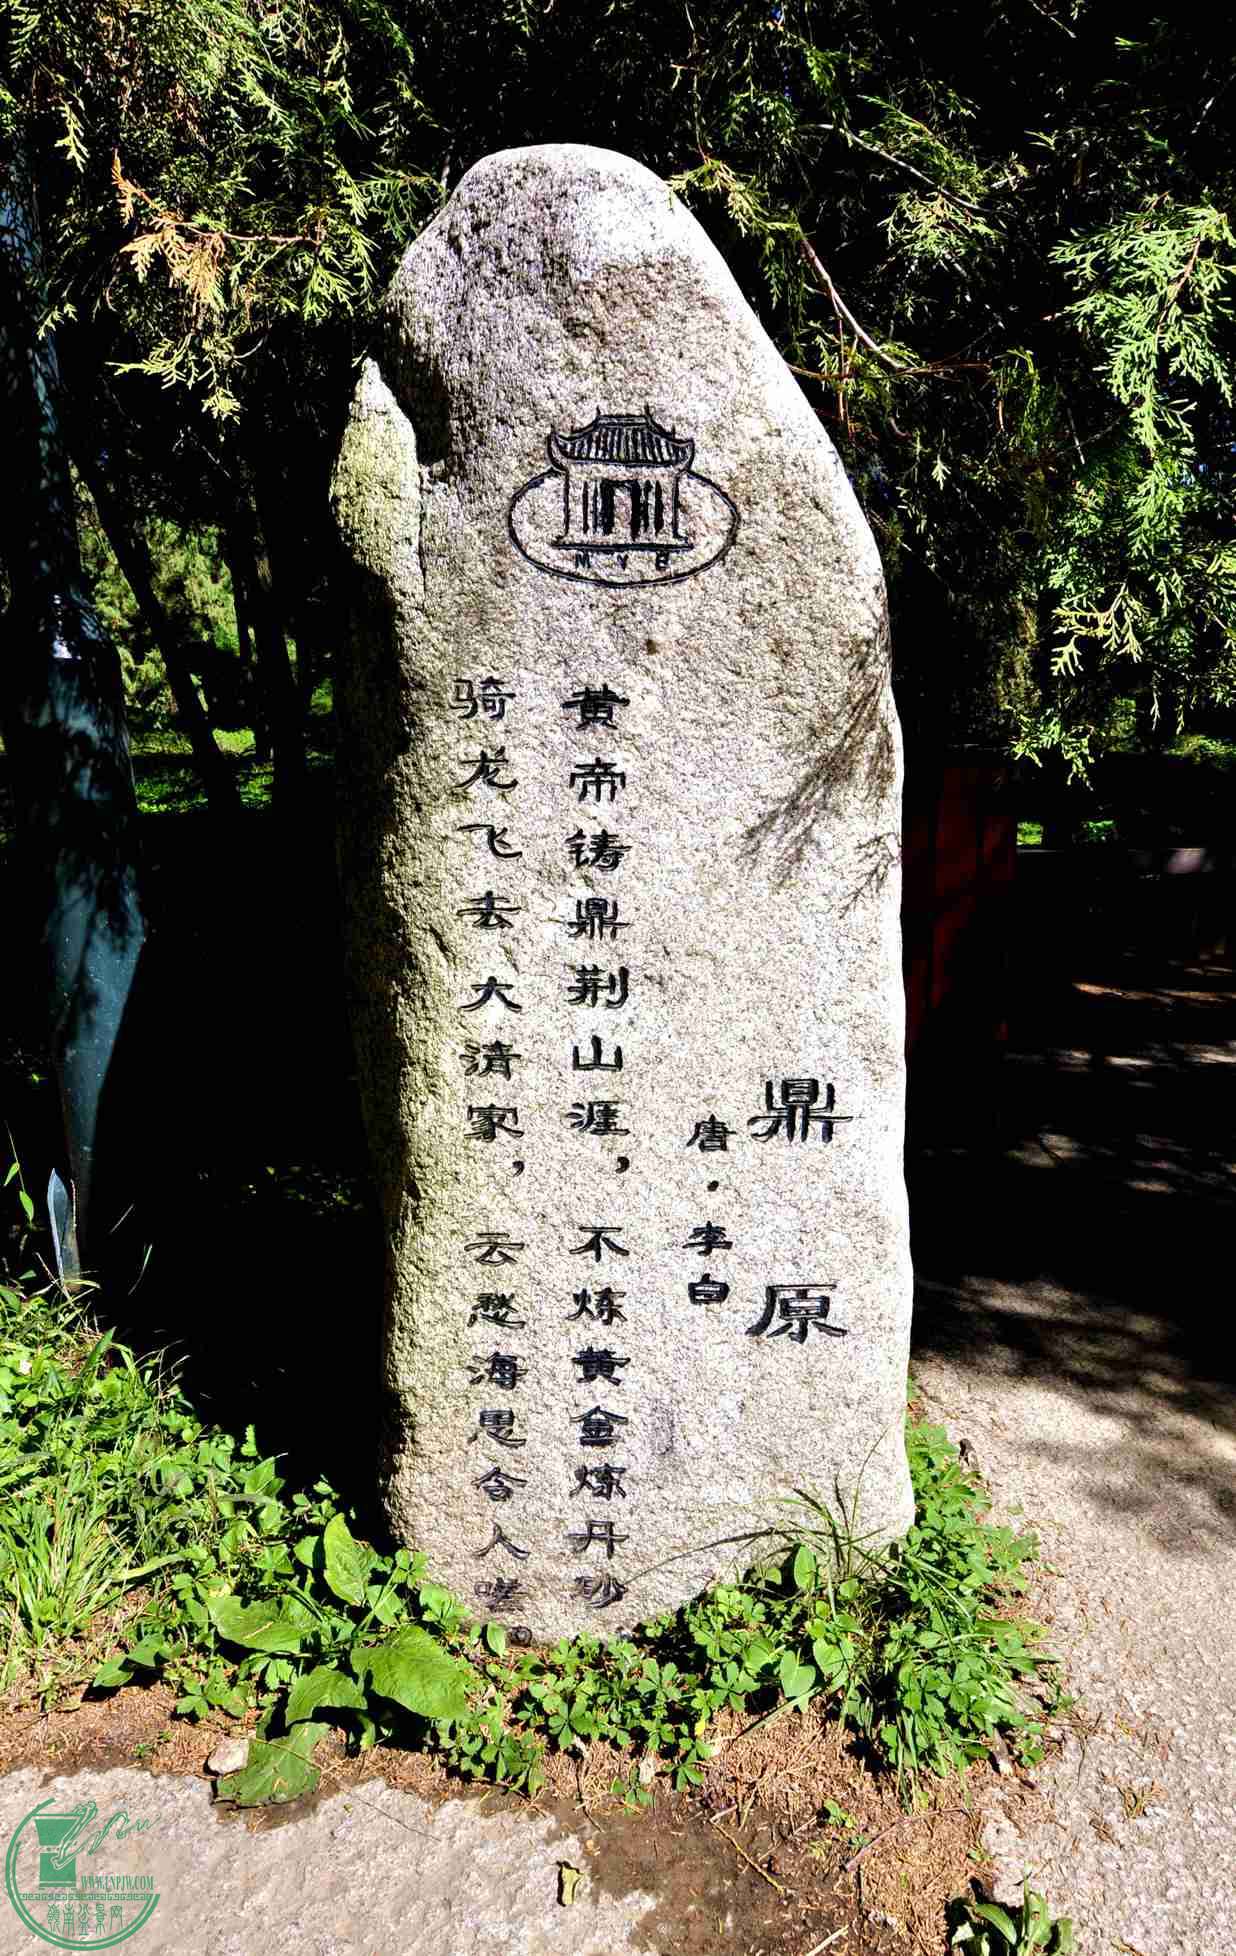 MVE
鼎原
唐·李白
黄帝铸鼎荆山涯，不炼黄金炼丹砂
骑龙飞去大清家，云愁海思令人嗟。
WWW.LNPJW.COM
嶺南盆景网